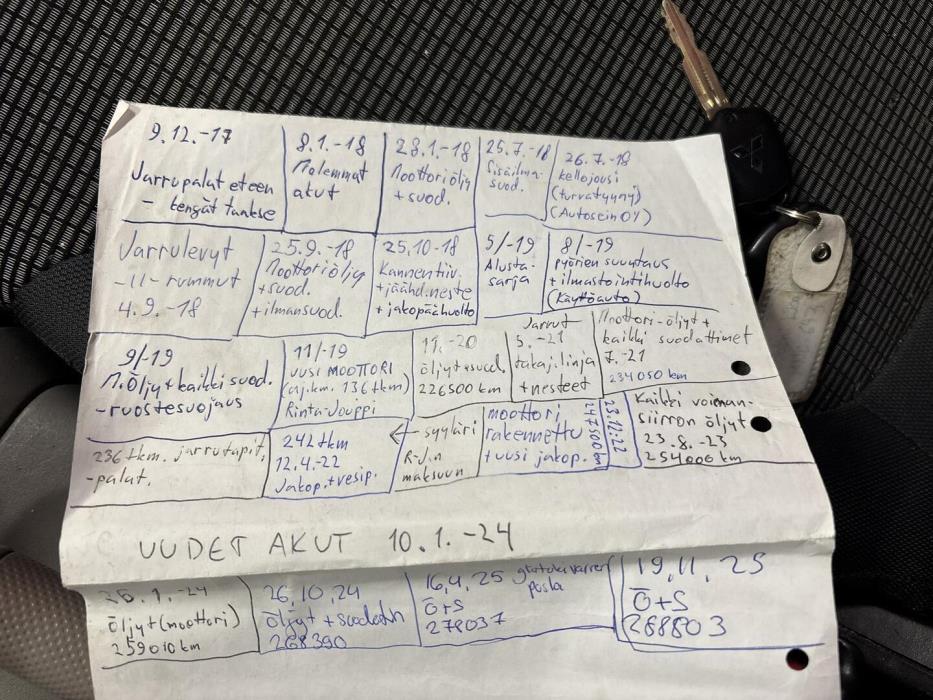 9.12.-17
Jarrupalat eteen
- tengät taakse
8.1.-18
Molemmat
akut
28.1.-18
Moottoriöljy
+ suod.
25.7.-18
Sisäilma-
suod.
26.7.-18
kellojousi
(turvatyyny)
(Autosein OY)
Jarrulevyt
-11- rummut
4.9.-18
25.9.-18
Moottoriöljy
+suod.
+ilmansuod.
25.10-18
Kannentiiv.
+jäähd.neste
+jakopäähuolto
5/-19
Alusta-
sarja
8/-19
pyörien suuntaus
+ ilmastointihuolto
(Käyttöauto)
9/-19
M.Öljy+kaikki suod.
-ruostesuojaus
11/-19
UUSI MOOTTORI
(aj.km. 136tkm)
Rinta-Jouppi
11.-20
öljyt+suod.
226500 km
Jarrut
5.-21
takaj.linja
+nesteet
Moottori-öljyt +
kaikki suodattimet
7.-21
234050 km
236tkm. jarrutapit,
-palat.
242tkm
12.4.-22
Jakop.+vesip.
← syyläri
R-J:n
maksuun
moottori
rakennettu
+uusi jakop.
247500 km
23.12.22
Kaikki voiman-
siirron öljyt
23.8.-23
254000 km
UUDET AKUT 10.1.-24
1.-24
Öljyt(moottori)
259010km
26,10,24
Öljyt +
268390
16,4,25
Ö+S
278037
19,11,25
Ö+S
288803